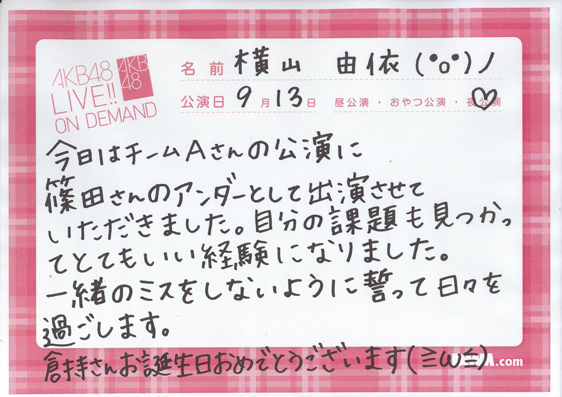 AKB48
LIVE!!
ON DEMAND
AKB
48
名前 横山 由依(°o°)ノ
公演日 9月13日 昼公演・おやつ公演・夜公演
今日はチームAさんの公演に
篠田さんのアンダーとして出演させて
いただきました。自分の課題も見つかっ
てとてもいい経験になりました。
一緒のミスをしないように誓って日々を
過ごします。
倉持さんお誕生日おめでとうございます(≧ω≦)
.com